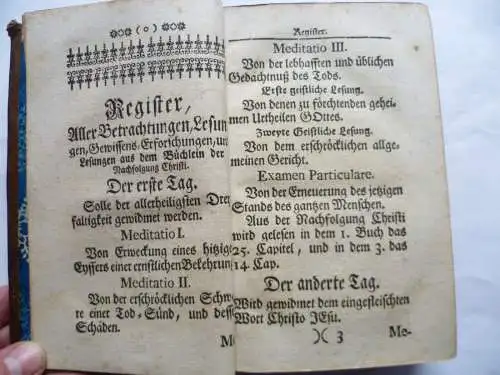 ( o )
Register,
Aller Betrachtungen, Lesun
gen, Gewissens-Erforschungen, un
Lesungen aus dem Büchlein der
Nachfolgung Christi.
Der erste Tag.
Solle der allerheiligsten Drey
faltigkeit gewidmet werden.
Meditatio I.
Von Erweckung eines hitzige
Eyffers einer ernstlichen Bekehrung
Meditatio II.
Von der erschröcklichen Schwe
re einer Tod-Sünd, und desse
Schäden.
Me
Register.
Meditatio III.
Von der lebhafften und üblichen
Gedächtnuß des Tods.
Erste geistliche Lesung.
Von denen zu förchtenden gehei-
men Urtheilen GOttes.
Zweyte Geistliche Lesung.
Von dem erschröcklichen allge-
meinen Gericht.
Examen Particulare.
Von der Erneuerung des jetzigen
Stands des gantzen Menschen.
Aus der Nachfolgung Christi
wird gelesen in dem 1. Buch das
25. Capitel, und in dem 3. das
14. Cap.
Der anderte Tag.
Wird gewidmet dem eingefleischten
Wort Christo JEsu.
)( 3
Me-